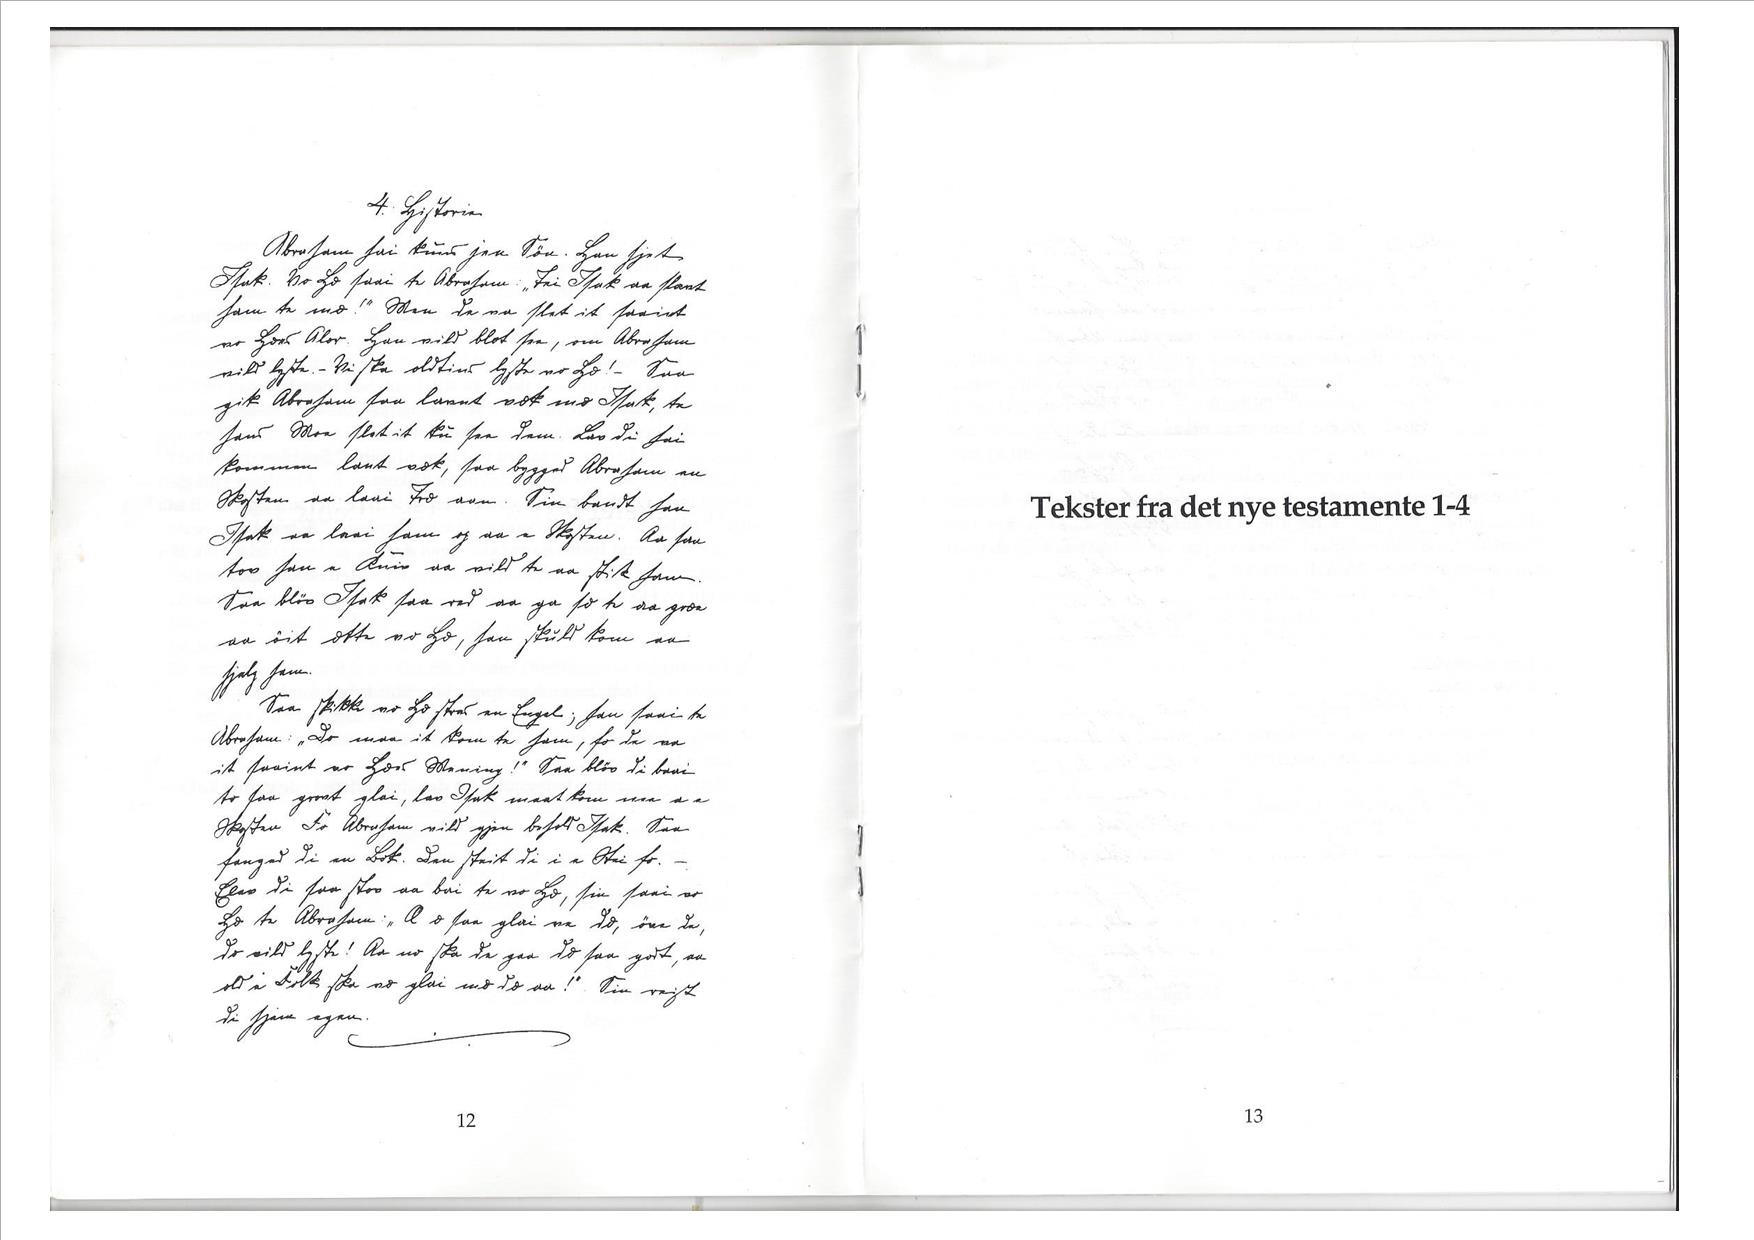 4. Historie
Abraham hai kuns jen Sön. Han hjet
Isak. Vo Hæ saai te Abraham: „Tei Isak aa slavt
ham te mæ!" Men de va slet it saaint
vo Hæs Alor. Han vild blot see, om Abraham
vild lyste. - Vi ska oldtins lyste vo Hæ! - Saa
gik Abraham saa lannt væk mæ Isak, te
hans Moe slet it ku see dem. Lav di hai
kommen lant væk, saa bygged Abraham en
Skosten aa laai Træ aan. Sin bandt han
Isak aa laai ham op aa e Skosten. Aa saa
tov han e Kniv aa vild te aa stik ham.
Saa blöv Isak saa red aa ga sæ te aa græe
aa öit ætte vo Hæ, han skuld kom aa
hjælp ham.
Saa skikke vo Hæ stras en Engel; han saai te
Abraham: „Do maa it kom te ham, fo de va
it saaint vo Hæs Mening!" Saa blöv di baai
to saa grovt glai, lav Isak maat kom nee a e
Skosten Fo Abraham vild gjen behold Isak. Saa
fanged di en Bok. Den steit di i e Stei fo. -
Elav di saa stov aa bai te vo Hæ, sin saai vo
Hæ te Abraham: „A æ saa glai ve dæ, öve de,
do vild lyste! Aa no ska de gaa dæ saa godt, aa
old e Folk ska væ glai mæ dæ aa!" Sin reist
di hjem egen.
12
Tekster fra det nye testamente 1-4
13